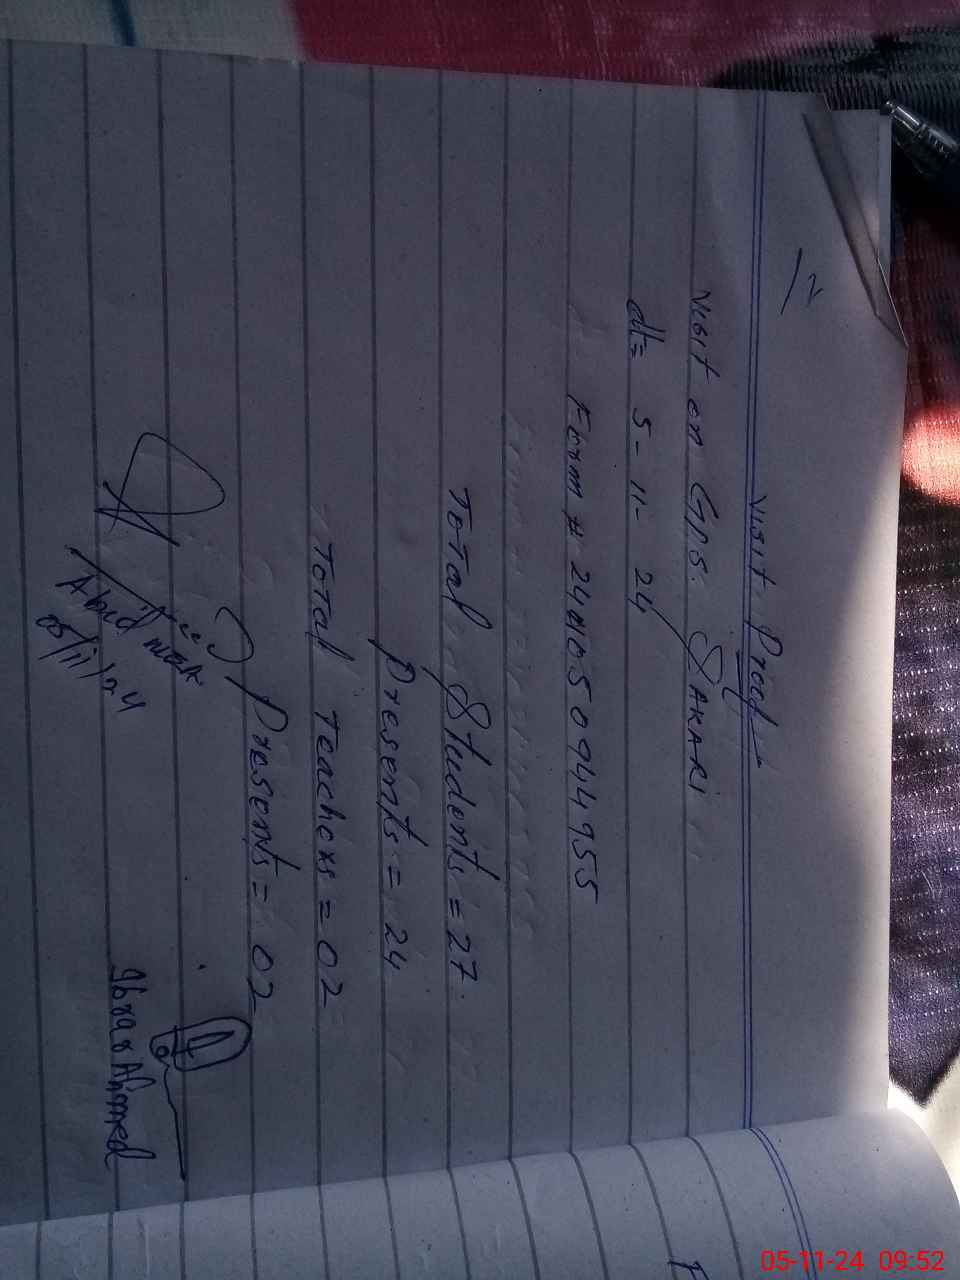 Visit Proof
Visit on GPS. SAKARi
dt= 5-11-24
Form # 24110550944955
Total Students = 27
Presents = 24
Total Teachers = 02
Presents = 02
Abid
05/11/24
Ibrar Ahmed
05-11-24 09:52